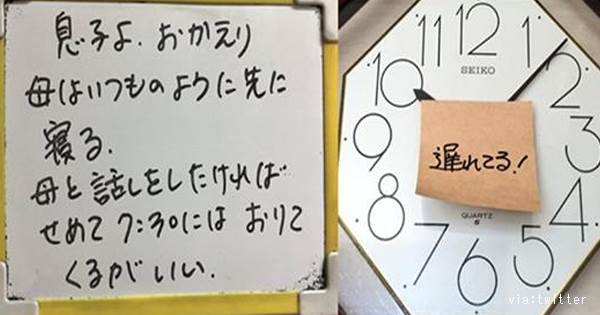 息子よ、おかえり
母はいつものように先に
寝る.
母と話しをしたければ
せめて 7:30には おりて
くるがいい.
11 12 1
10 2
9 3
8 4
7 6 5
SEIKO
遅れてる!
QUARTZ
via:twitter